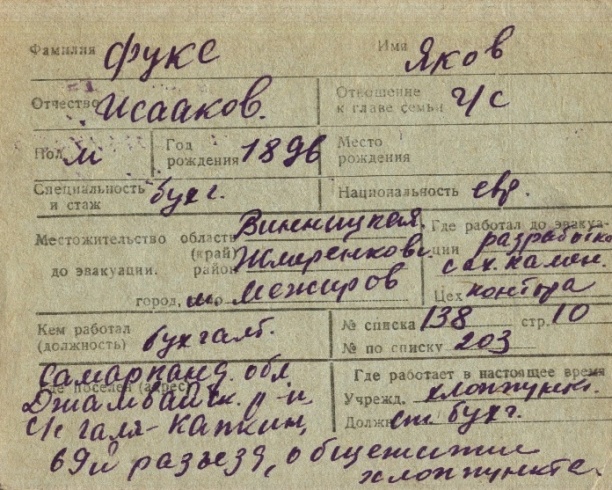 Фамилия Фукс Имя Яков
Отчество Исааков. Отношение к главе семьи г/с
Пол м Год рождения 1896 Место рождения
Специальность и стаж бухг. Национальность евр.
Местожительство до эвакуации. область Винницкая,
(край) район Жмеренковс.
город, м. Межиров
Где работал до эвакуации разработка
сах. камен.
Цех контора
Кем работал (должность) бухгалт.
№ списка 138 стр. 10
№ по списку 203
Где поселен (адрес) Самарканд. обл
Джамбайск. р-н
с/с Галя-Капкин,
69й разъезд, общежитие
хлоппункта.
Где работает в настоящее время
Учрежд. хлоппункт.
Должн ст. бухг.